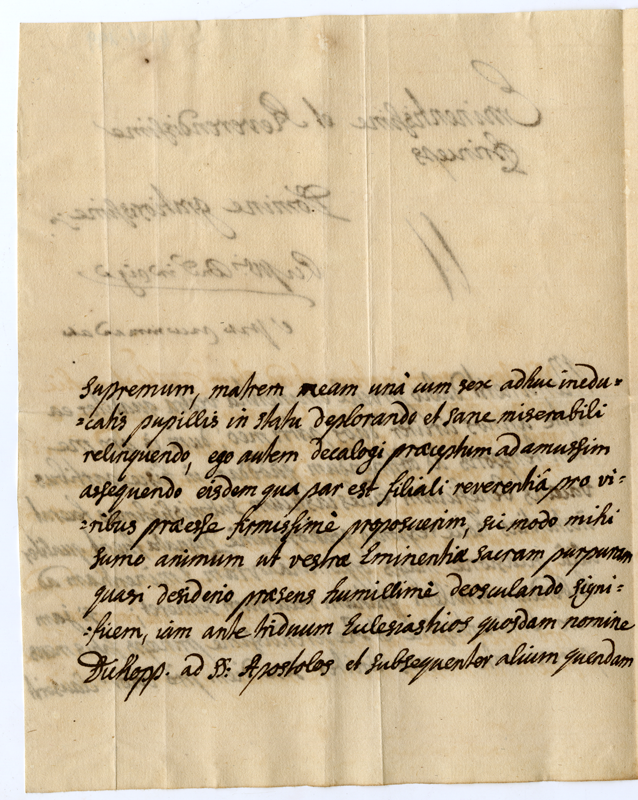 supremum, matrem meam unà cum sex adhuc inedu-
=catis pupillis in statu deplorando et sane miserabili
relinquendo, ego autem decalogi præceptum adamussim
assequendo eisdem qua par est filiali reverentiâ pro vi-
=ribus præesse firmissimè proposuerim, sic modo mihi
sumo animum ut vestræ Eminentiæ sacram purpuram
quasi desiderio præsens humillimè deosculando signi-
=ficem, iam ante triduum Eclesiasticos quosdam nomine
ad SS: Apostolos et subsequenter alium quendam